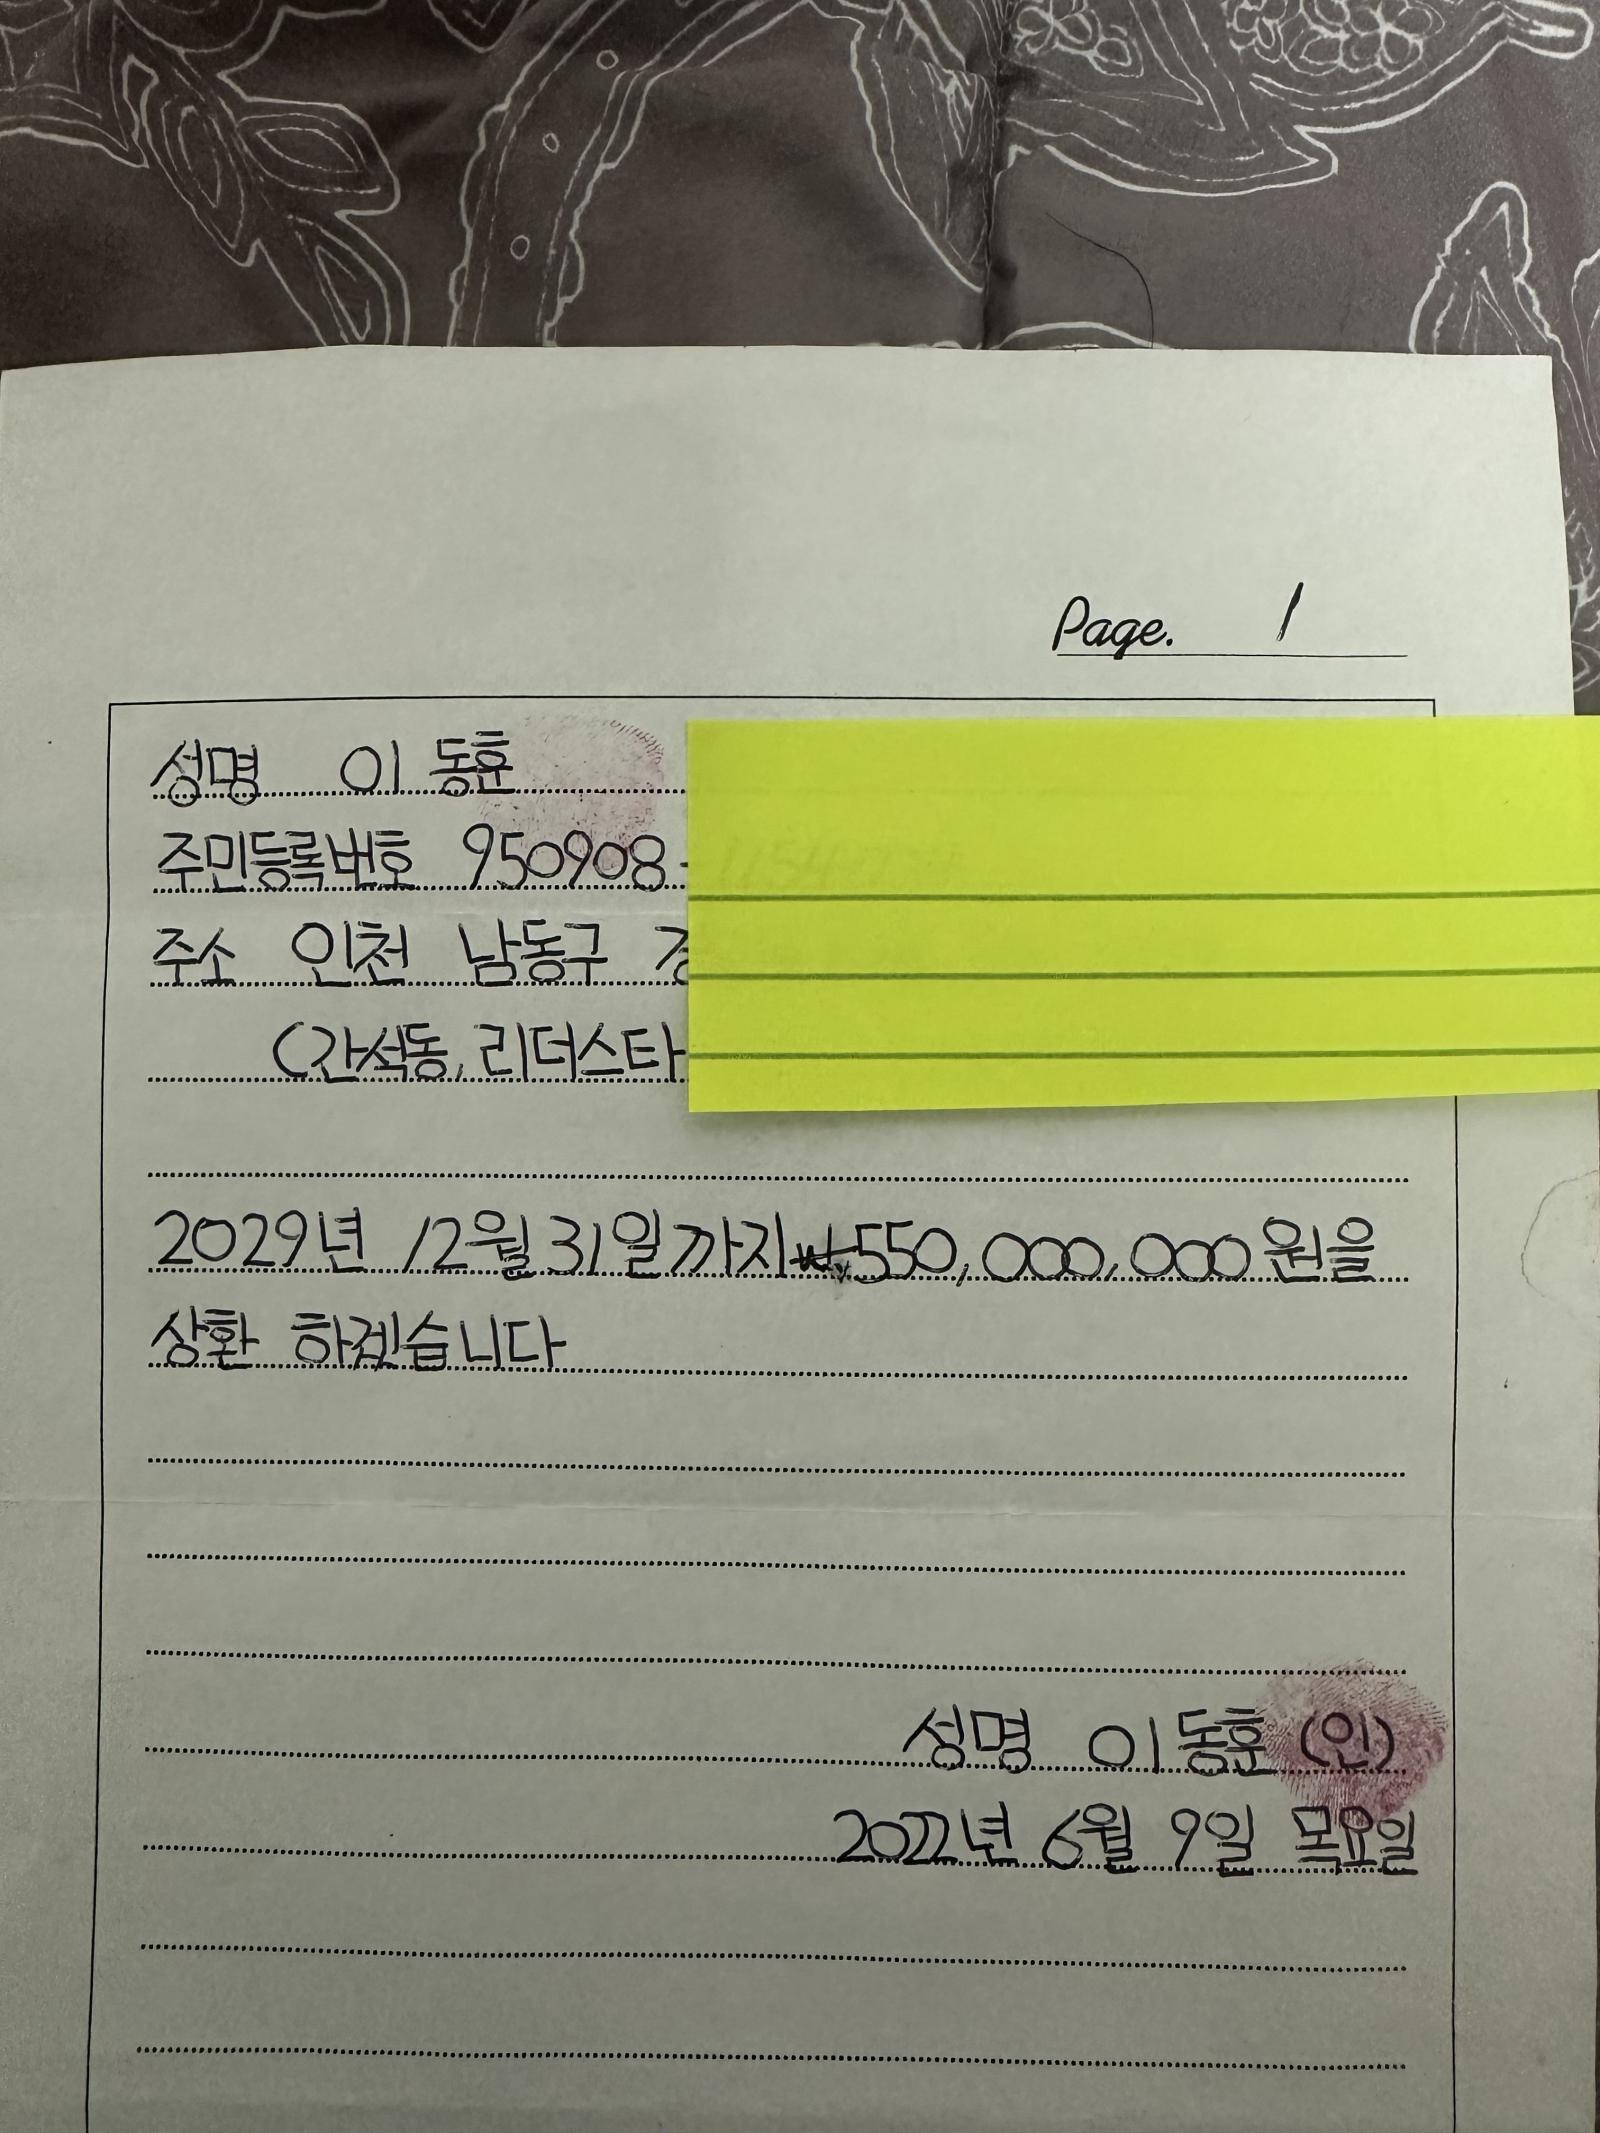 Page. 1
성명 이동훈
주민등록번호 950908-
주소 인천 남동구
(간석동, 리더스타
2029년 12월 31일까지 ₩550,000,000원을
상환 하겠습니다
성명 이동훈 (인)
2022년 6월 9일 목요일